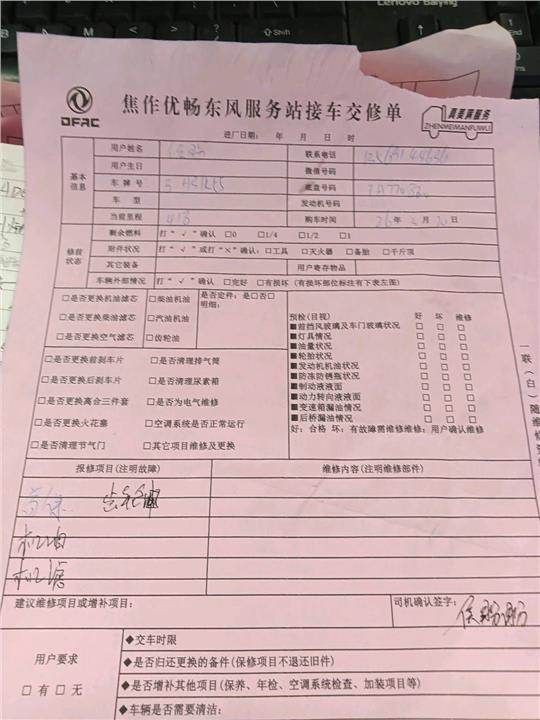 Lenovo Baiying
Shift
DFAC
焦作优畅东风服务站接车交修单
真美满服务
ZHENMEIMANFUWU
进厂日期: 年 月 日 时
基本信息
用户姓名 联系电话
用户生日 微信号码
车牌号 底盘号码
车型 发动机号码
当前里程 418 购车时间 26年2月20日
修前状态
剩余燃料 打"√"确认 □0 □1/4 □1/2 □1
附件状况 打"√"或打"×"确认: □工具 □灭火器 □备胎 □千斤顶
其它装备 用户寄存物品
车辆外部情况 打"√"确认 □完好 □有损坏 (有损坏部位标注有下表左面)
□是否更换机油滤芯 □柴油机油 是否定件: 是□否□
明细:
□是否更换柴油滤芯 □汽油机油
□是否更换空气滤芯 □齿轮油
预检(目视) 好 坏 维修
■前挡风玻璃及车门玻璃状况 □ □ □
■灯具情况 □ □ □
■油量状况 □ □ □
■轮胎状况 □ □ □
■发动机机油情况 □ □ □
■防冻防锈瓶状况 □ □ □
■制动液液面 □ □ □
■动力转向液液面 □ □ □
■变速箱漏油情况 □ □ □
■后桥漏油情况 □ □ □
好: 合格 坏: 有故障需维修维修: 用户确认维修
□是否更换前刹车片 □是否清理排气筒
□是否更换后刹车片 □是否清理尿素箱
□是否更换离合三件套 □是否为电气维修
□是否更换火花塞 □空调系统是否正常运行
□是否清理节气门 □其它项目维修及更换
一联(白)随
报修项目(注明故障) 维修内容(注明维修部件)
首保
机油
机滤
建议维修项目或增补项目: 司机确认签字:
用户要求
□有 □无
◆交车时限
◆是否归还更换的备件(保修项目不退还旧件)
◆是否增补其他项目(保养、年检、空调系统检查、加装项目等)
◆车辆是否需要清洁: